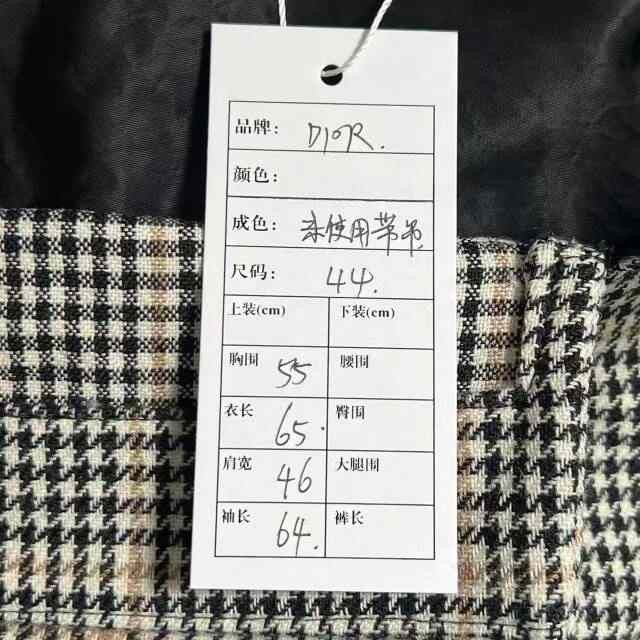 品牌: DIOR.
颜色:
成色: 未使用带吊.
尺码: 44.
上装(cm) 下装(cm)
胸围 55 腰围
衣长 65. 臀围
肩宽 46 大腿围
袖长 64. 裤长